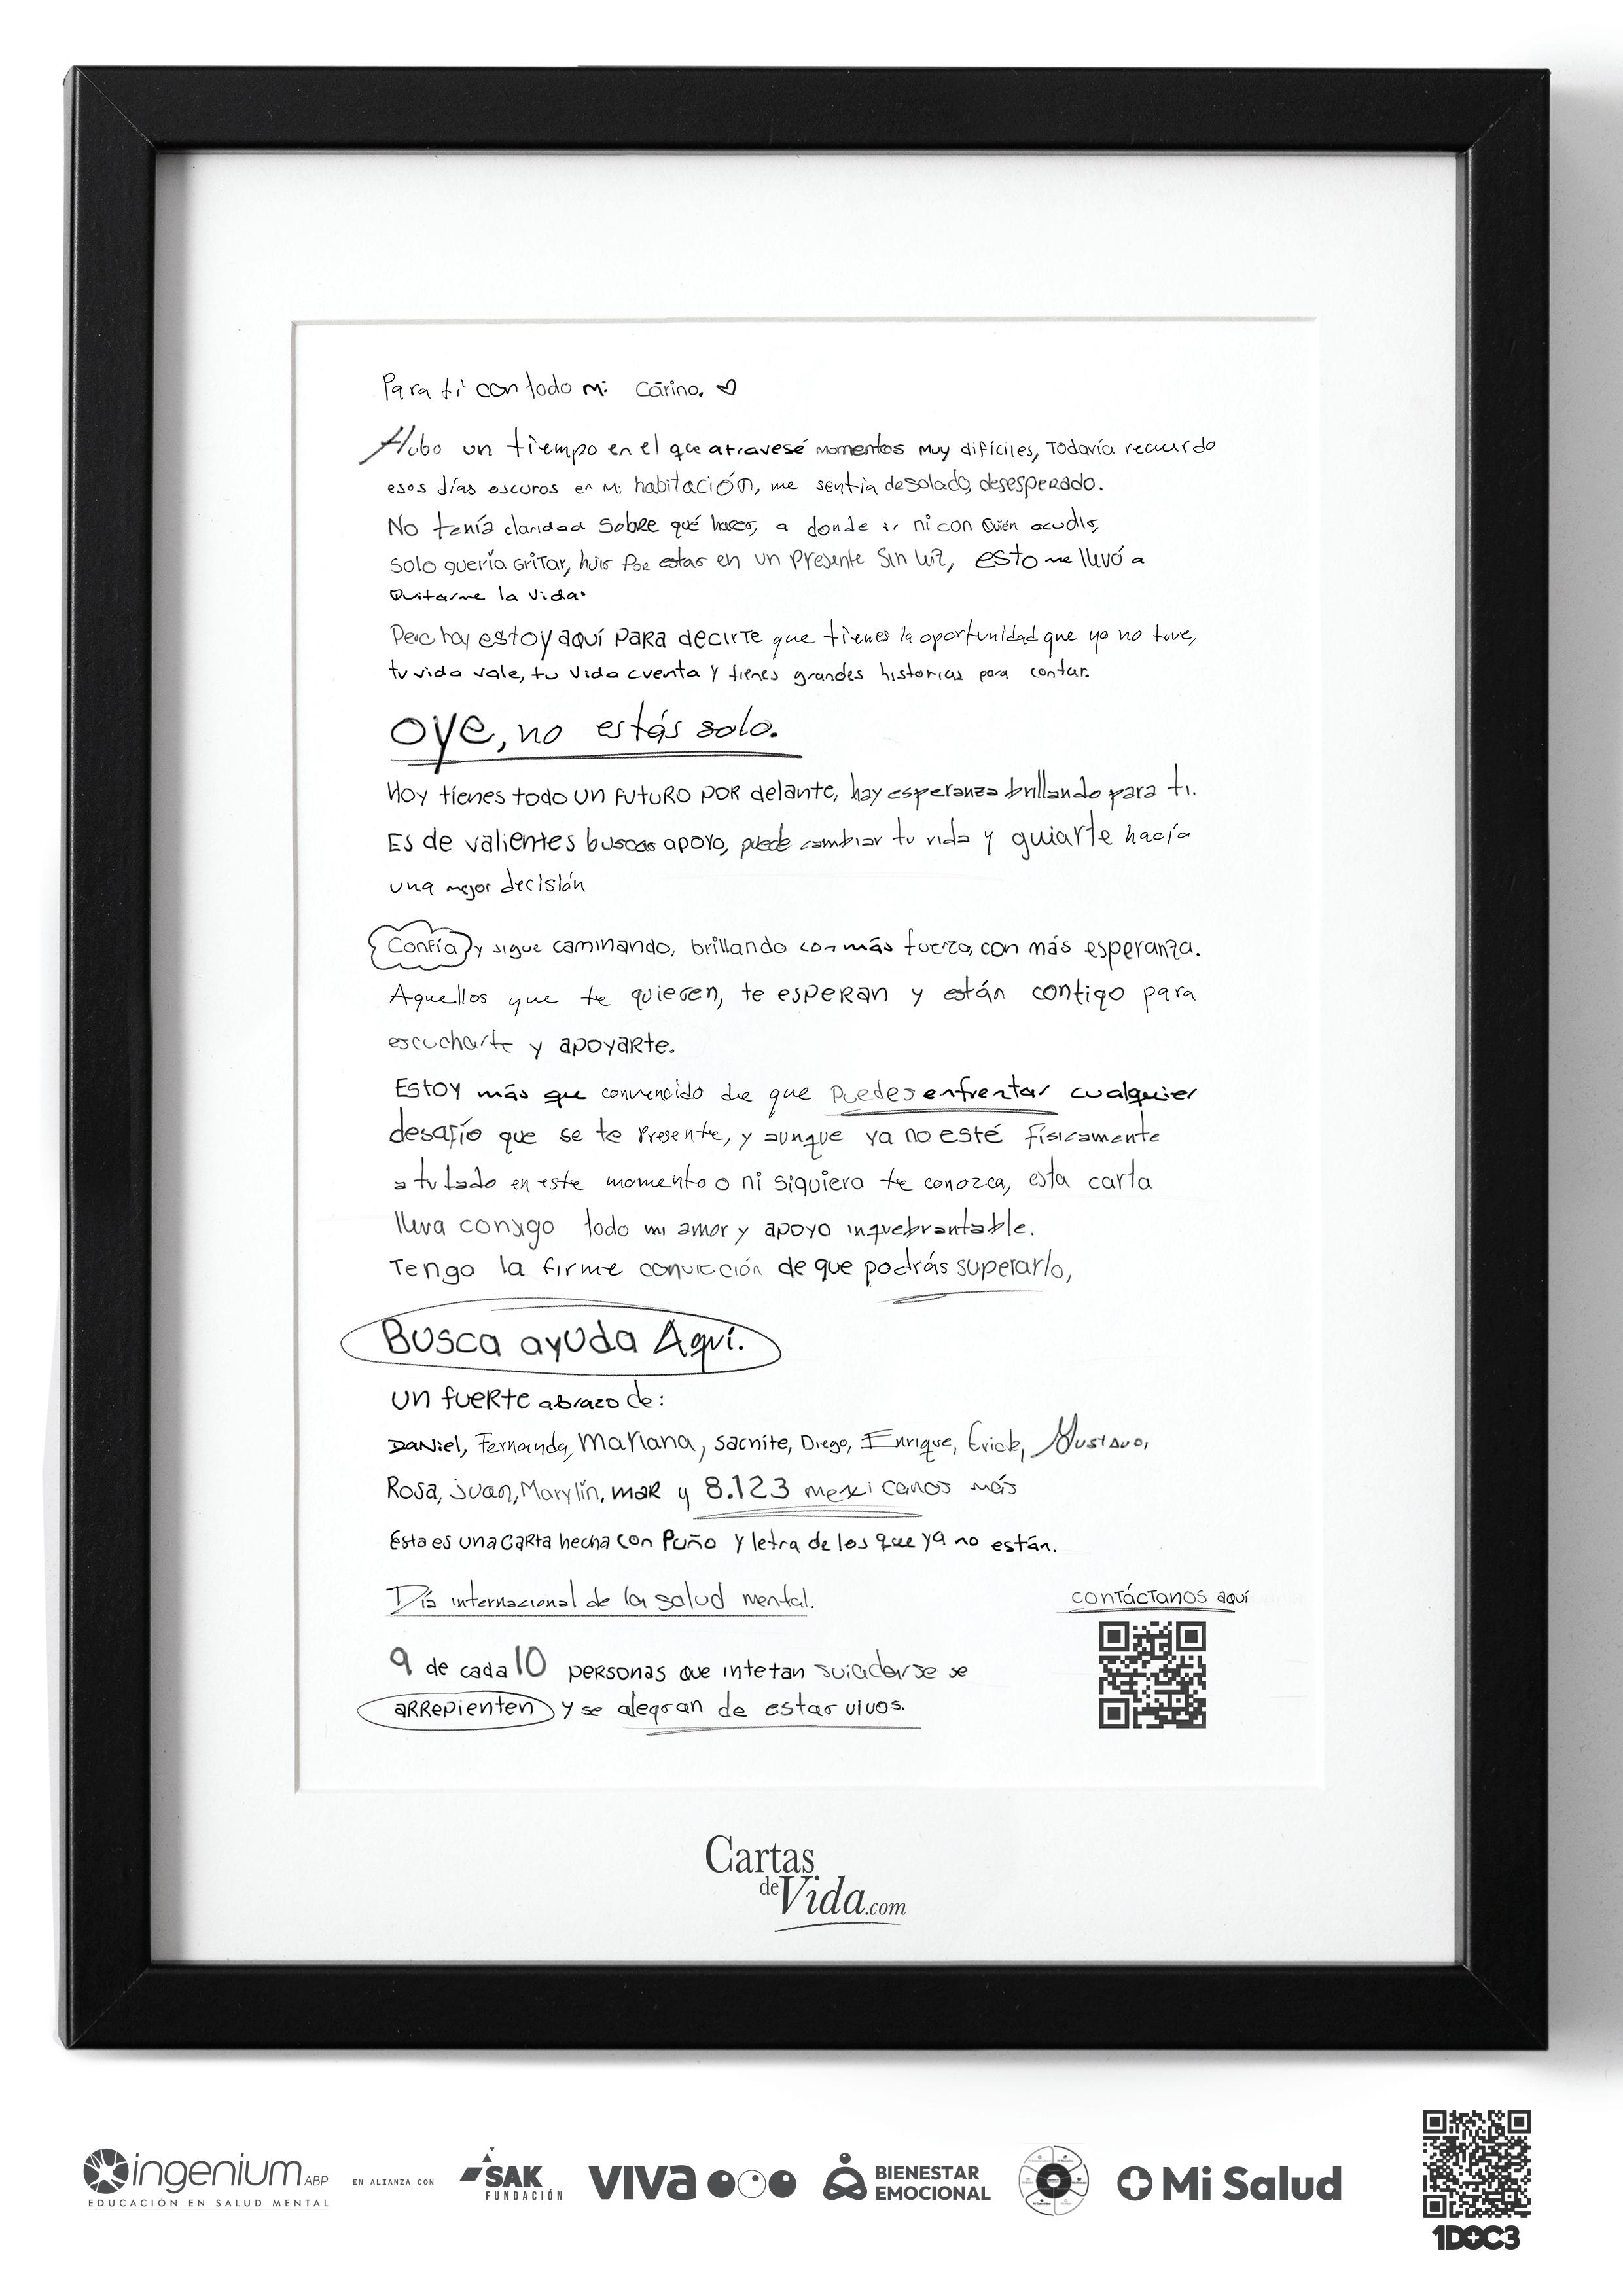 Para ti con todo mi Cariño. ♡
Hubo un tiempo en el que atravesé momentos muy difíciles, Todavía recuerdo
esos días oscuros en mi habitación, me sentía desolado, desesperado.
No tenía claridad sobre qué hacer, a donde ir ni con Quién acudir,
solo quería Gritar, huir Por estar en un Presente Sin luz, esto me llevó a
Quitarme la vida.
Pero hoy estoy aquí para decirte que tienes la oportunidad que yo no tuve,
tu vida vale, tu vida cuenta y tienes grandes historias para contar.
Oye, no estás solo.
Hoy tienes todo un futuro por delante, hay esperanza brillando para ti.
Es de valientes buscar apoyo, puede cambiar tu vida y guiarte hacía
una mejor decisión
Confía y sigue caminando, brillando con más fuerza, con más esperanza.
Aquellos que te quieren, te esperan y están contigo para
escucharte y apoyarte.
Estoy más que convencido de que Puedes enfrentar cualquier
desafío que se te Presente, y aunque ya no esté físicamente
a tu lado en este momento o ni siquiera te conozca, esta carta
lleva consigo todo mi amor y apoyo inquebrantable.
Tengo la firme convicción de que podrás superarlo,
Busca ayuda Aquí.
un fuerte abrazo de:
Daniel, Fernanda, Mariana, Sacnite, Diego, Enrique, Erick, Gustavo,
Rosa, juan, Marylín, mar y 8.123 mexicanos más
Esta es una Carta hecha con Puño y letra de los que ya no están.
Día internacional de la salud mental.
contáctanos aquí
9 de cada 10 personas que intetan suicidarse se
arrepienten y se alegran de estar vivos.
Cartas
de Vida.com
ingenium ABP
EDUCACIÓN EN SALUD MENTAL
EN ALIANZA CON
SAK
FUNDACIÓN
VIVA
BIENESTAR
EMOCIONAL
Mi Salud
1DOC3